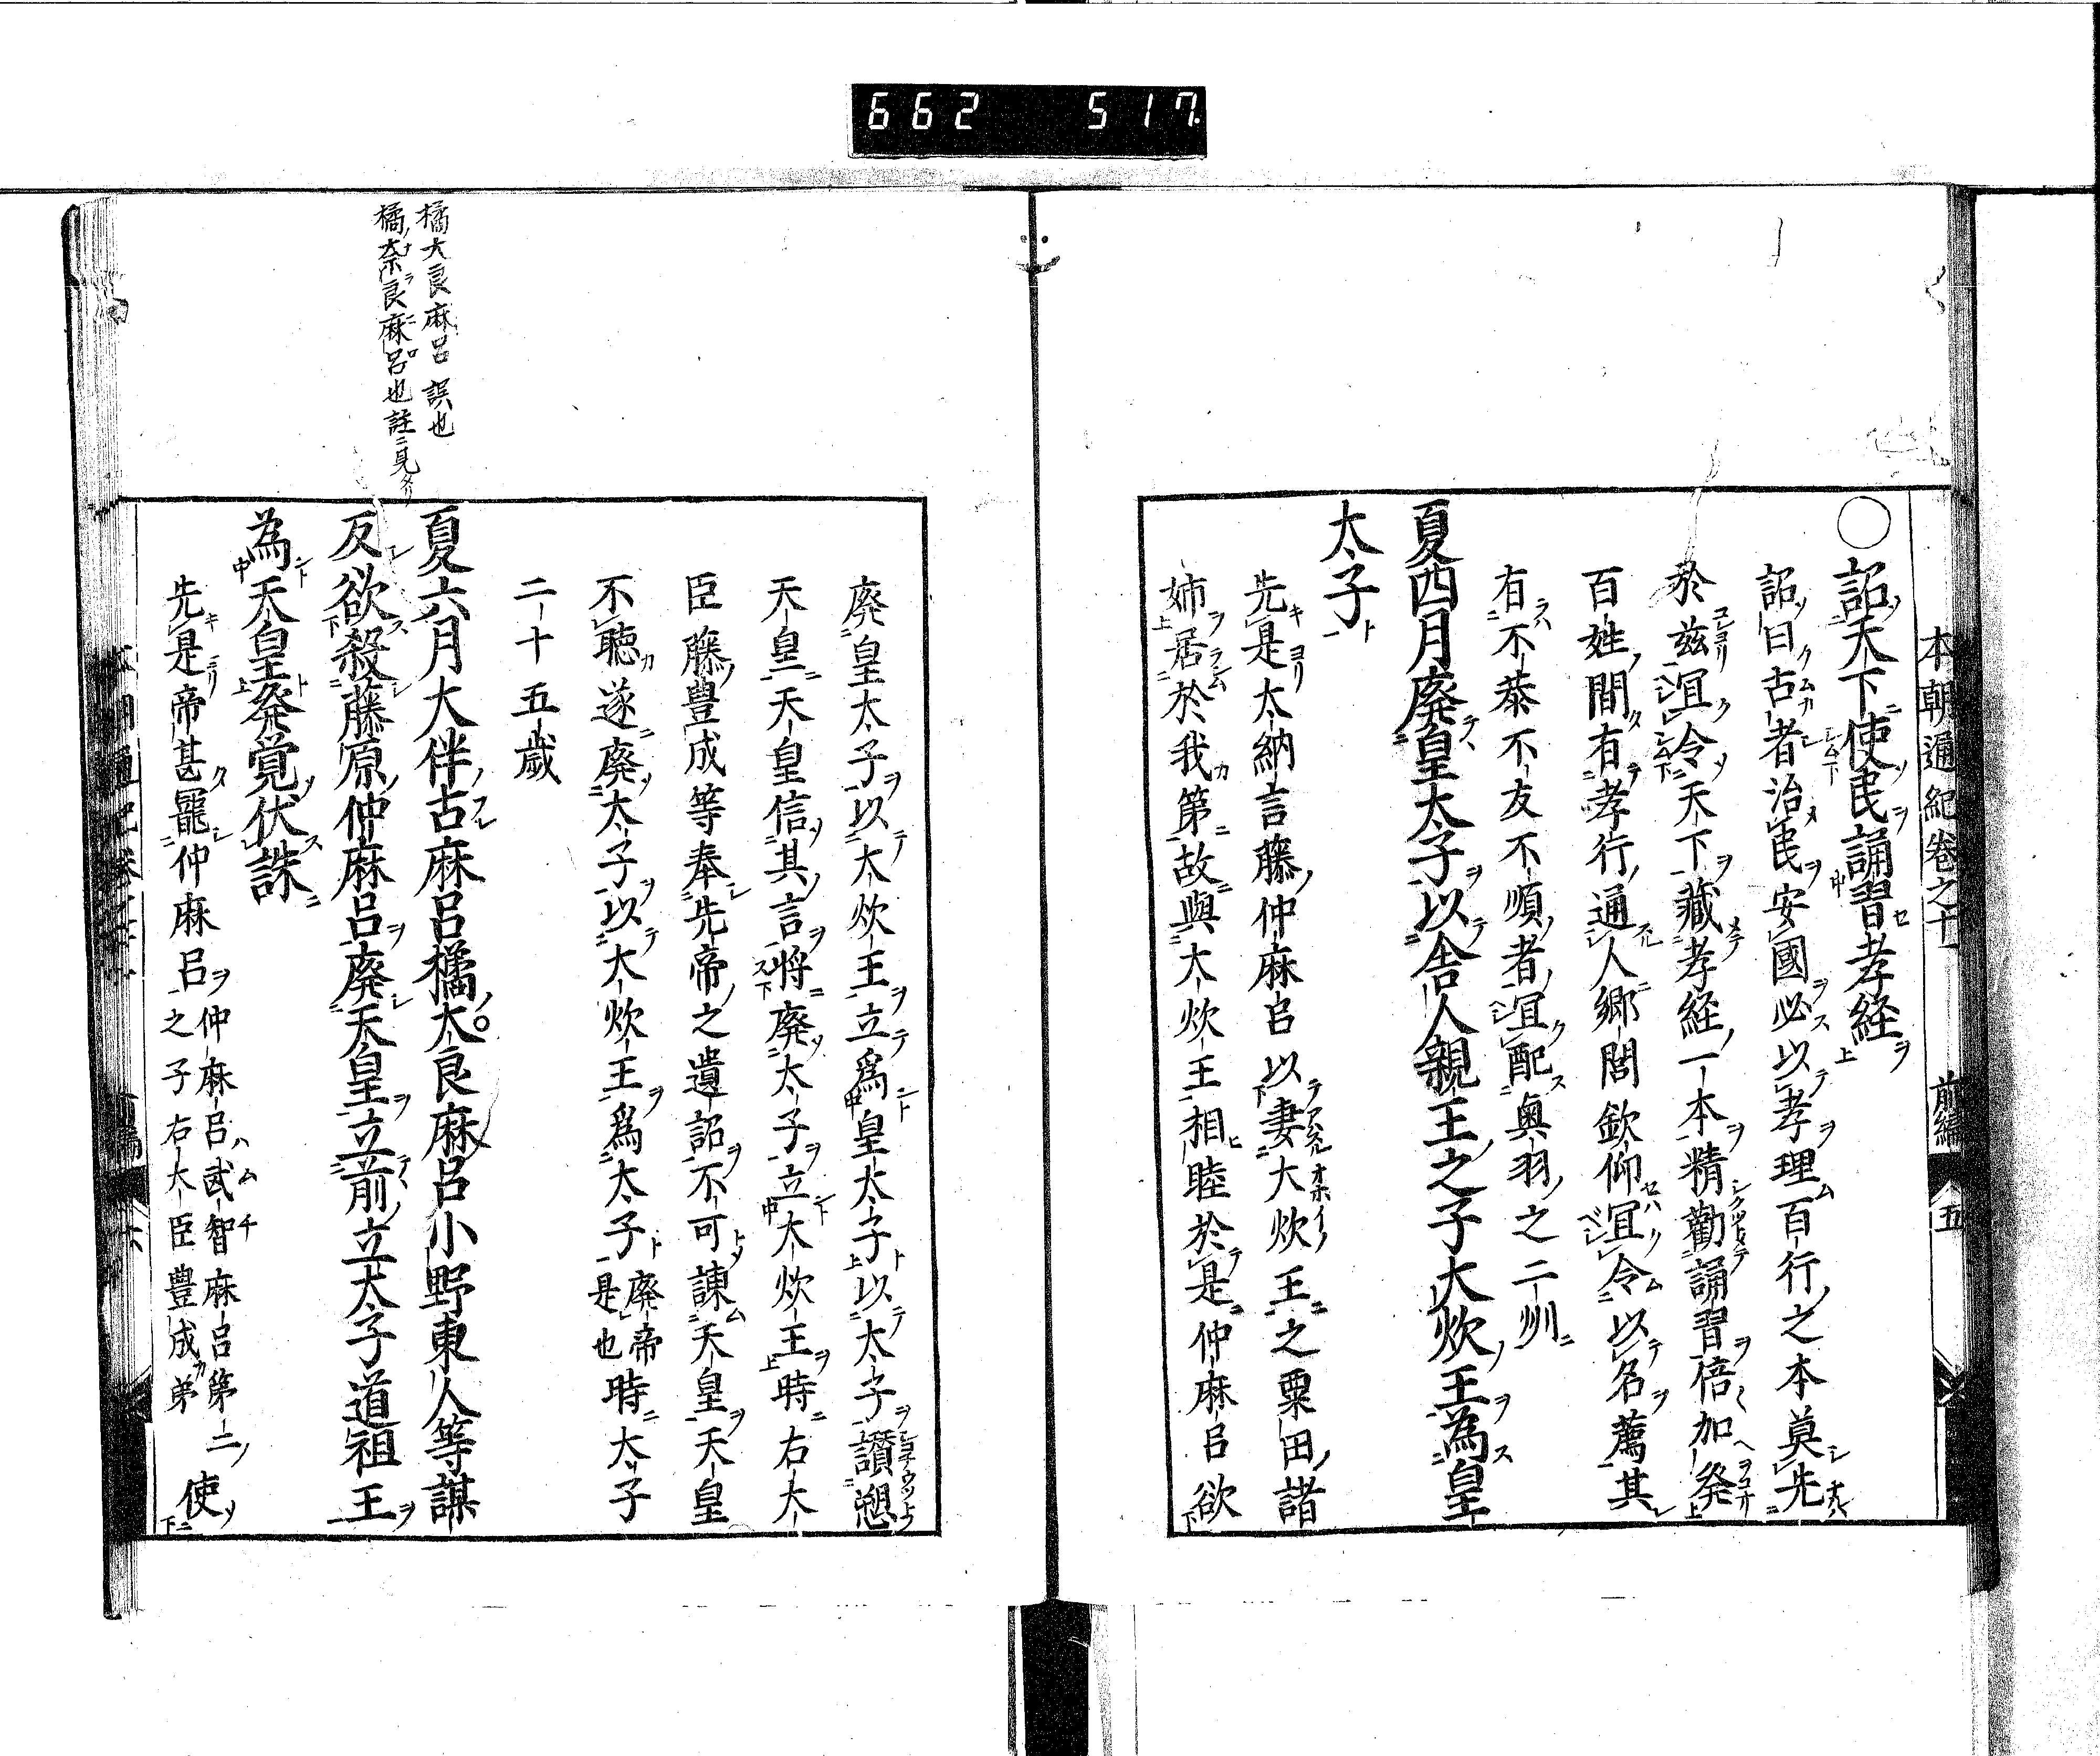 662 517
本朝通紀卷之十 前編 五
○詔天下使民誦習孝経
詔曰古者治民安國必以孝理百行之本莫先
於茲冝令天下藏孝経一本精勸誦習倍加発
百姓間有孝行通人郷閭欽仰冝令以名薦其
有不恭不友不順者冝配奥羽之二州
夏四月廃皇太子以舎人親王之子大炊王為皇
太子
先是大納言藤仲麻呂以妻大炊王之粟田諸
姉居於我第故與大炊王相睦於是仲麻呂欲
廃皇太子以大炊王立爲皇太子以太子讃愬
天皇天皇信其言将廃太子立大炊王時右大
臣藤豊成等奉先帝之遺詔不可諫天皇天皇
不聴遂廃太子以大炊王爲太子廃帝是也時太子
二十五歳
夏六月大伴古麻呂橘大良麻呂小野東人等謀
反欲殺藤原仲麻呂廃天皇立前立太子道祖王
為天皇発覚伏誅
先是帝甚寵仲麻呂仲麻呂ハ武智麻呂第二之子右大臣豊成弟使
橘大良麻呂誤也
橘奈良麻呂也註ニ見タリ